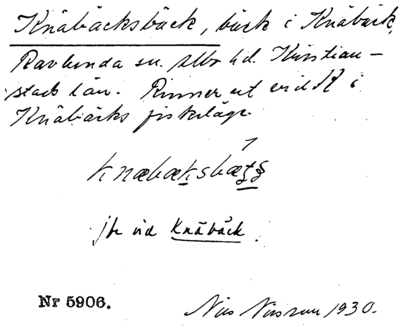 Knäbäcksbäck, bäck i Knäbäck,
Ravlunda sn. Albo hd. Kristian-
stads län. Rinner ut vid H i
Knäbäcks fiskeläge
jfr vid Knäbäck.
Nr 5906.
Nils Nilsson 1930.